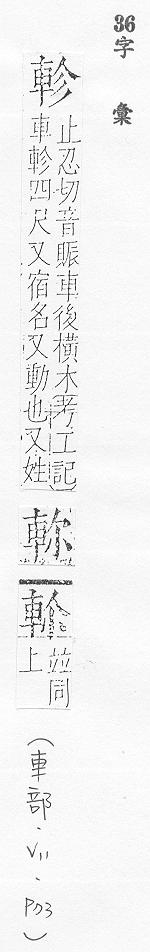 36字彙
軫
止忍切音賑車後橫木考工記
車軫四尺又宿名又動也又姓
軫
並同
上
(車部·V11·P73)